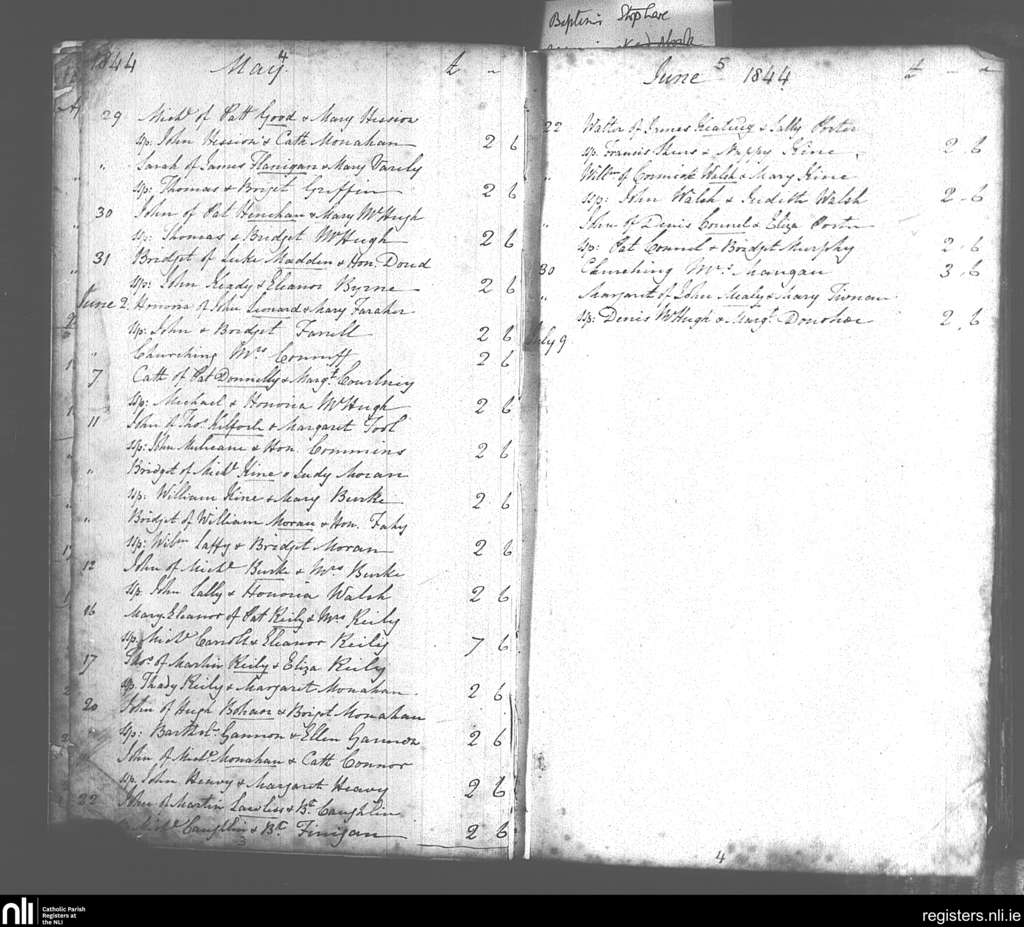 Baptisms
1844 May 4 £
29 Mich.l of Patt Good & Mary Hission
sp: John Hession & Cath Monahan 2 6
" Sarah of James Flanigan & Mary Varily
sp: Thomas & Bridget Griffin 2 6
30 John of Pat Hinehan & Mary McHugh
sp: Thomas & Bridget McHugh 2 6
31 Bridget of Luke Madden & Hon. Doud
sp: John Keady & Eleanor Byrne 2 6
June 2. Honora of John Leonard & Mary Faraher
sp: John & Bridget Farell 2 6
" Churching Mrs Conniff 2 6
7 Cath of Pat Donnelly & Margt Courtney
sp: Michael & Honoria McHugh 2 6
11 John of Thos Kilfoile & Margaret Tool
sp: John & Hon. Commins 2 6
" Bridget of Michl Kine & Judy Moran
sp: William Kine & Mary Burke 2 6
" Bridget of William Moran & Hon. Fahy
sp: Willm Laffy & Bridget Moran 2 6
12 John of Michl Burke & Mrs Burke
sp: John Lally & Honoria Walsh 2 6
16 Mary Eleanor of Pat Reily & Mrs Reily
sp: Michl Carroll & Eleanor Reily 7 6
17 Thos of Martin Reily & Eliza Reily
sp: Thady Reily & Margaret Monahan 2 6
20 John of Hugh Bohan & Bridget Monahan
sp: Barthol. Gannon & Ellen Gannon 2 6
John of Michl Monahan & Cath Connor
sp: John Heavy & Margaret Heavy 2 6
22 John of Martin Lawless & Bt Caughlin
Michl Caughlin & Bt Finigan 2 6
3
June 5 1844 £
22 Walter of James Keating & Sally Porter
sp: Francis & Nappy Kine 2 6
" Willm of Cormick Walsh & Mary Kine
sp: John Walsh & Judith Walsh 2 - 6
" John of Denis Connel & Eliza Porter
sp: Pat Connel & Bridget Murphy 2 - 6
30 Churching Mrs Mangan 3 - 6
" Margaret of John Mealy & Mary Tiernan
sp: Denis McHugh & Margt Donohoe 2 . 6
July 9
4
nli
Catholic Parish
Registers at
the NLI
registers.nli.ie